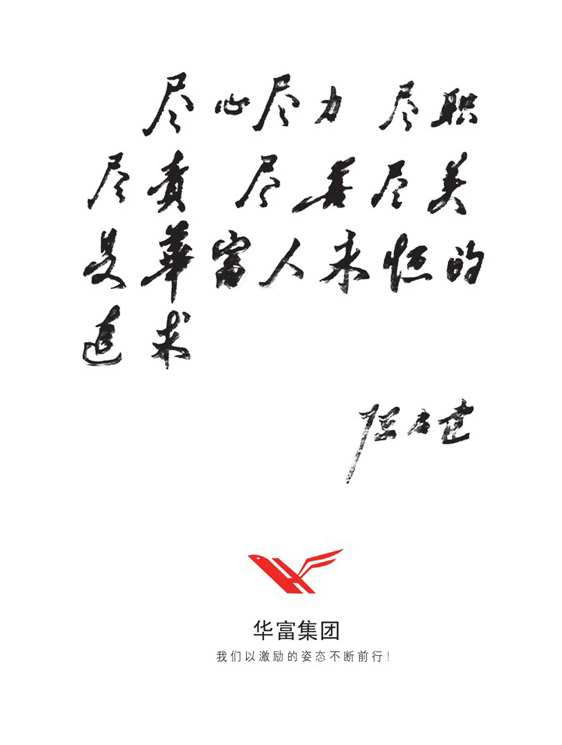 尽心尽力 尽职
尽责 尽善尽美
是華富人永恒的
追求
华富集团
我们以激励的姿态不断前行!